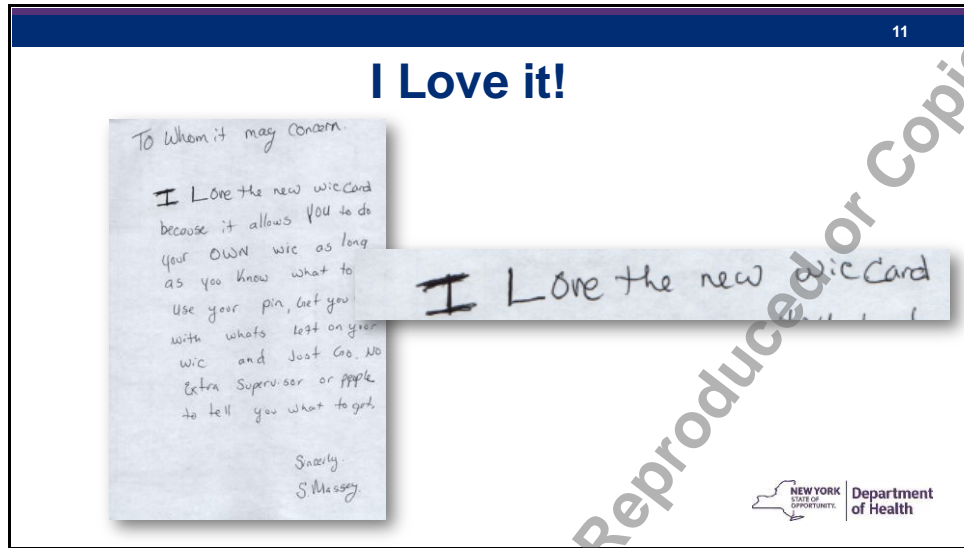 11
I Love it!
To Whom it may Concern.
I Love the new wic card
because it allows YOU to do
your OWN wic as long
as you know what to
use your pin, Get you
with whats left on your
wic and Just Go. No
Extra Supervisor or people
to tell you what to get.
Sincerly.
S. Massey.
I Love the new wic Card
Reproduced or Copie
NEW YORK
STATE OF
OPPORTUNITY.
Department
of Health